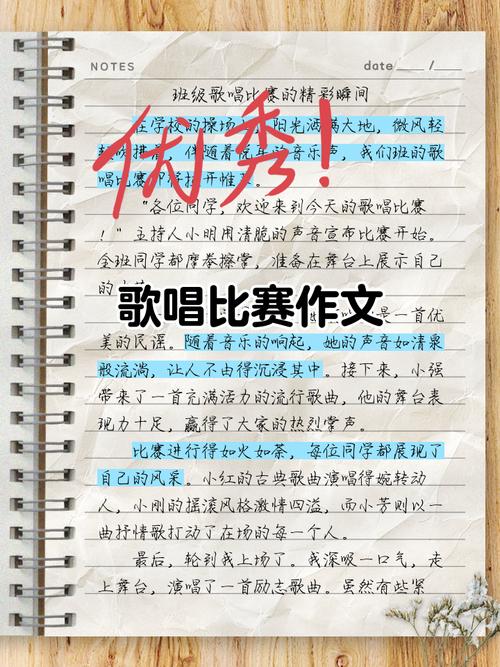 NOTES
date ___ / ___
班级歌唱比赛的精彩瞬间
优秀!
在学校的操场上,阳光洒满大地,微风轻
轻吹拂着,伴随着悦耳的音乐声,我们班的歌
唱比赛 拉开帷 。
"各位同学,欢迎来到今天的歌唱比赛
!"主持人小明用清脆的声音宣布比赛开始。
全班同学都摩拳擦掌,准备在舞台上展示自己
的
歌唱比赛作文
是一首优
美的民谣。随着音乐的响起,她的声音如清泉
般流淌,让人不由得沉浸其中。接下来,小强
带来了一首充满活力的流行歌曲,他的舞台表
现力十足,赢得了大家的热烈掌声。
比赛进行得如火如荼,每位同学都展现了
自己的风采。小红的古典歌曲演唱得婉转动
人,小刚的摇滚风格激情四溢,而小芳则以一
曲抒情歌打动了在场的每一个人。
最后,轮到我上场了。我深吸一口气,走
上舞台,演唱了一首励志歌曲。虽然有些紧